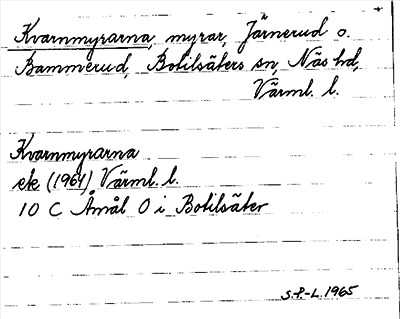 Kvarnmyrarna, myrar, Järnerud o.
Bammerud, Botilsäters sn, Näs hd,
Värml. l.
Kvarnmyrarna
ek (1964) Värml. l.
10 C Åmål O i Botilsäter
S.P.-L. 1965